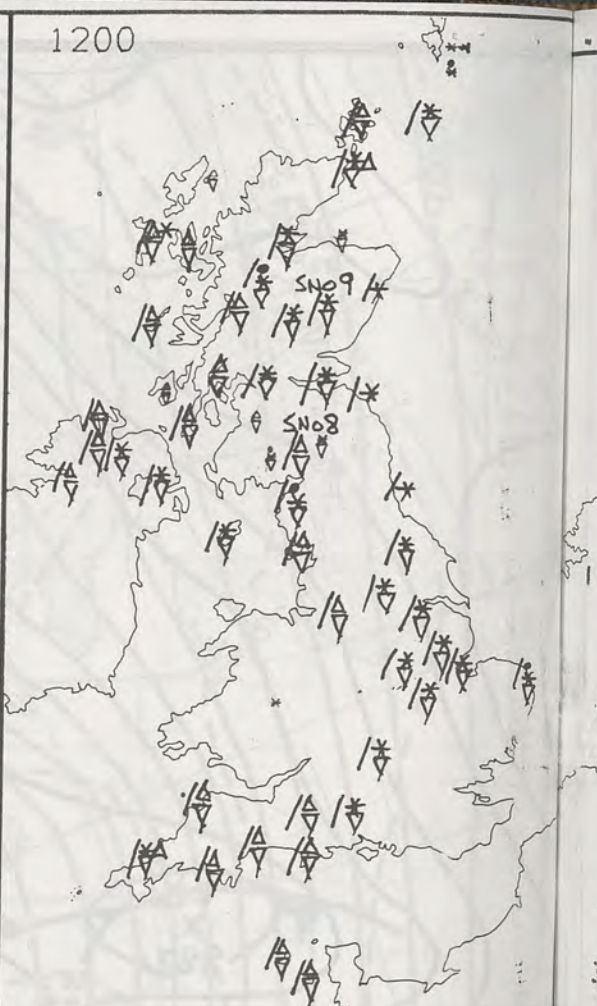 1200
SNO9
SNO8